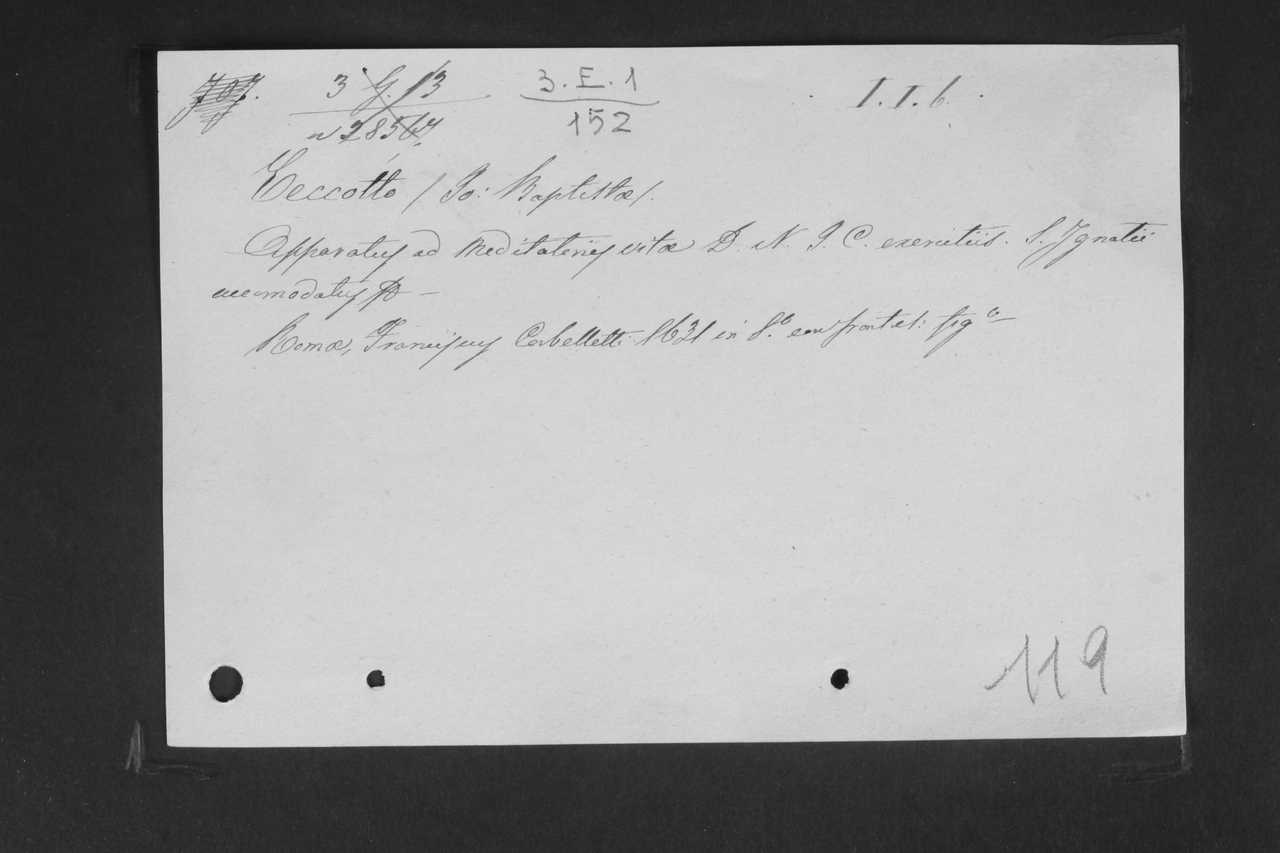 707. 3 G. 13 3. E. 1 I. I. 6.
n 28564 152
Ceccotto / Jo: Baptistæ /.
Apparatus ad meditationes vitæ D. N. J. C. exercitiis. S. Ignatii
accomodatus
Romæ, Franciscus Corbelletti 1631 in 8.º con frontesp: fig.º
119